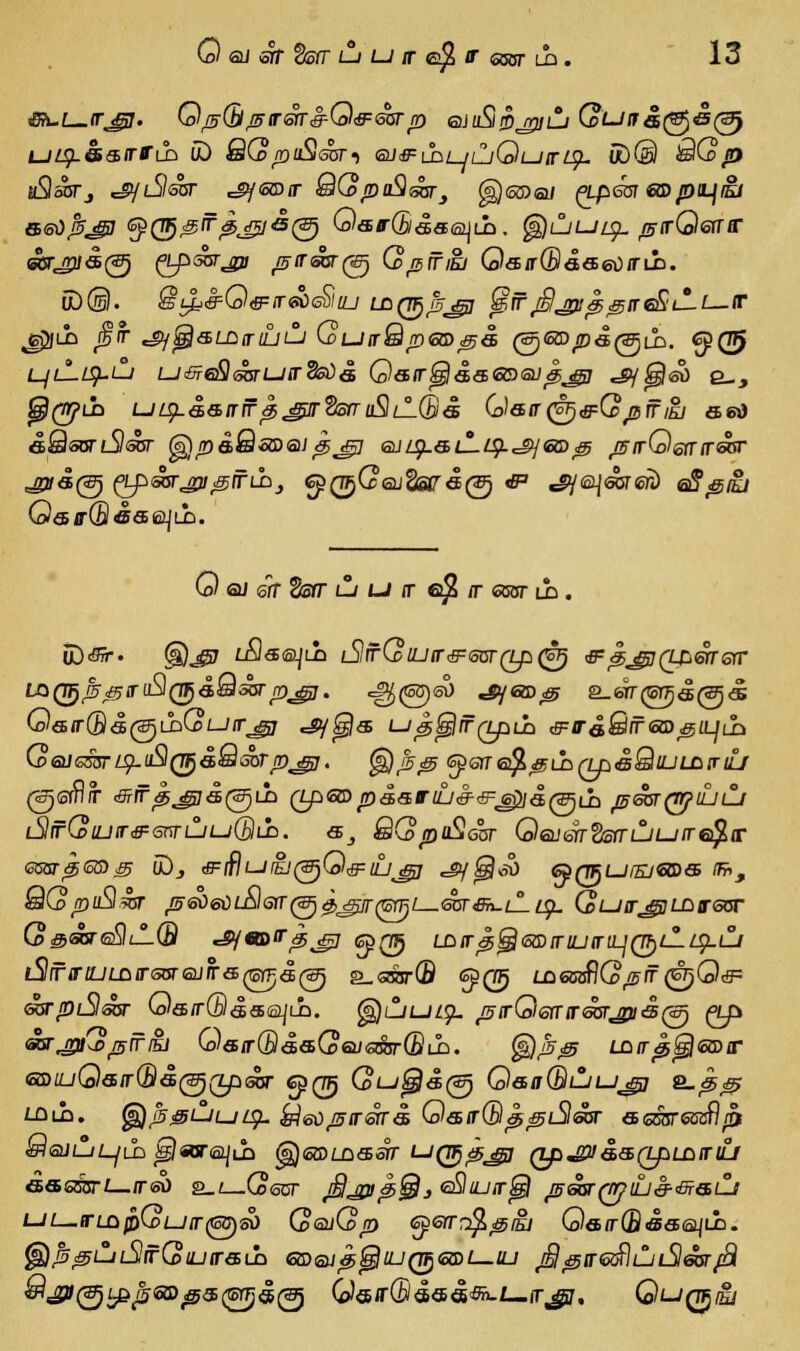 வெள்ளைப் பாஷாணம். 13
கூடாது. நெடுநாள்ச்சென்ற வயிற்றுப் போக்குக்கு
படிக்காரம் ௰ கிரேயின், வசம்புப்பொடி ௰௫ கிரே
யின், அபின் அரை கிரேயின், இவை மூன்றையுங்
கலந்து ஒருதரத்துக்கு கொடுக்கவும். இப்படி நாளொ
ன்றுக்கு மூன்று நான்கு நேரங் கொடுக்கலாம்.
௰௫. இந்தச்சொல்லிய மருந்து நீர் நிறுத்தாவிட்டா
லும் நீர் அதிகமாய்ப் போகிறதைக் குறைக்கும். ஒரு
புட்டிப் பசுவின்பாலைக் கொதிக்கவைத்து அதில் உ,
திரும் படிக்காரத்தூளையிட்டுக் கொஞ்சநேரங் கல
க்கினபின் இறக்கிவைத்து வடிகட்டிஅதை நாளொன்
றுக்கு மூன்றுதரம், ஒருவேளைக்கு ௪ அவுன்ஸ் வீதங்
கொடுக்கவும்.
வெள்ளைப்பாஷாணம்.
௰௬. இது மிகவும் பிரயோசனமுஞ் சத்துமுள்ள
மருந்தாயிருக்கின்றது. ஆனால் அதை உள்ளுக்குக்
கொடுக்கும்போது அதிக பத்திரமும் சாக்கிரதையும்
வேண்டியிருக்கின்றது. இந்த ஔஷதம் முக்கியமாய்
குளிர் சுரத்துக்கும் முறைக்காய்ச்சலுக்கும் நன்றாய்ப்
பிரயோசனப்படும். ௧, கிரேயின் வெள்ளைப்பாஷா
ணத்தை ௰, சரிபங்குசெய்து அதில் ஒருபங்கை ௩,
கிரேயின் நல்லமிளகுத்தூளுடன்கூட்டி போதுமான
தேன்விட்டு அரைத்து ஒரு மாத்திரையாயுருட்டிப்
பிராயமானவர்களுக்கு உண்டு ஒரு மணிநேரஞ்செ
ன்றபின் கொடுக்கவும். இப்படி நாளொன்றுக்கு மூ
ன்றுநேரங் கொடுக்கவேண்டும். இந்த மாத்திரை
யைகொடுக்குமுன் ஒரு பேதிக்கு கொடுப்பது உத்த
மம். இந்தப்படி சிலநாள்க் கொடுத்தபின் கண்ணிற்
சிவப்பும் தினவும் இமைகள் பருத்து முறுக்கமாய்
க்கண்டால் உடனே நிறுத்தி, வியாதி நன்றாய்ச்சுகப்
படாமற்போனால் வேறே ஔஷதங் கொடுக்கவும்.
இந்தப்பிரயோகம் வைத்தியருடைய நிதானிப்பின்றி
சிறுகுழந்தைகளுக்கு கொடுக்கக்கூடாது. பெருங்